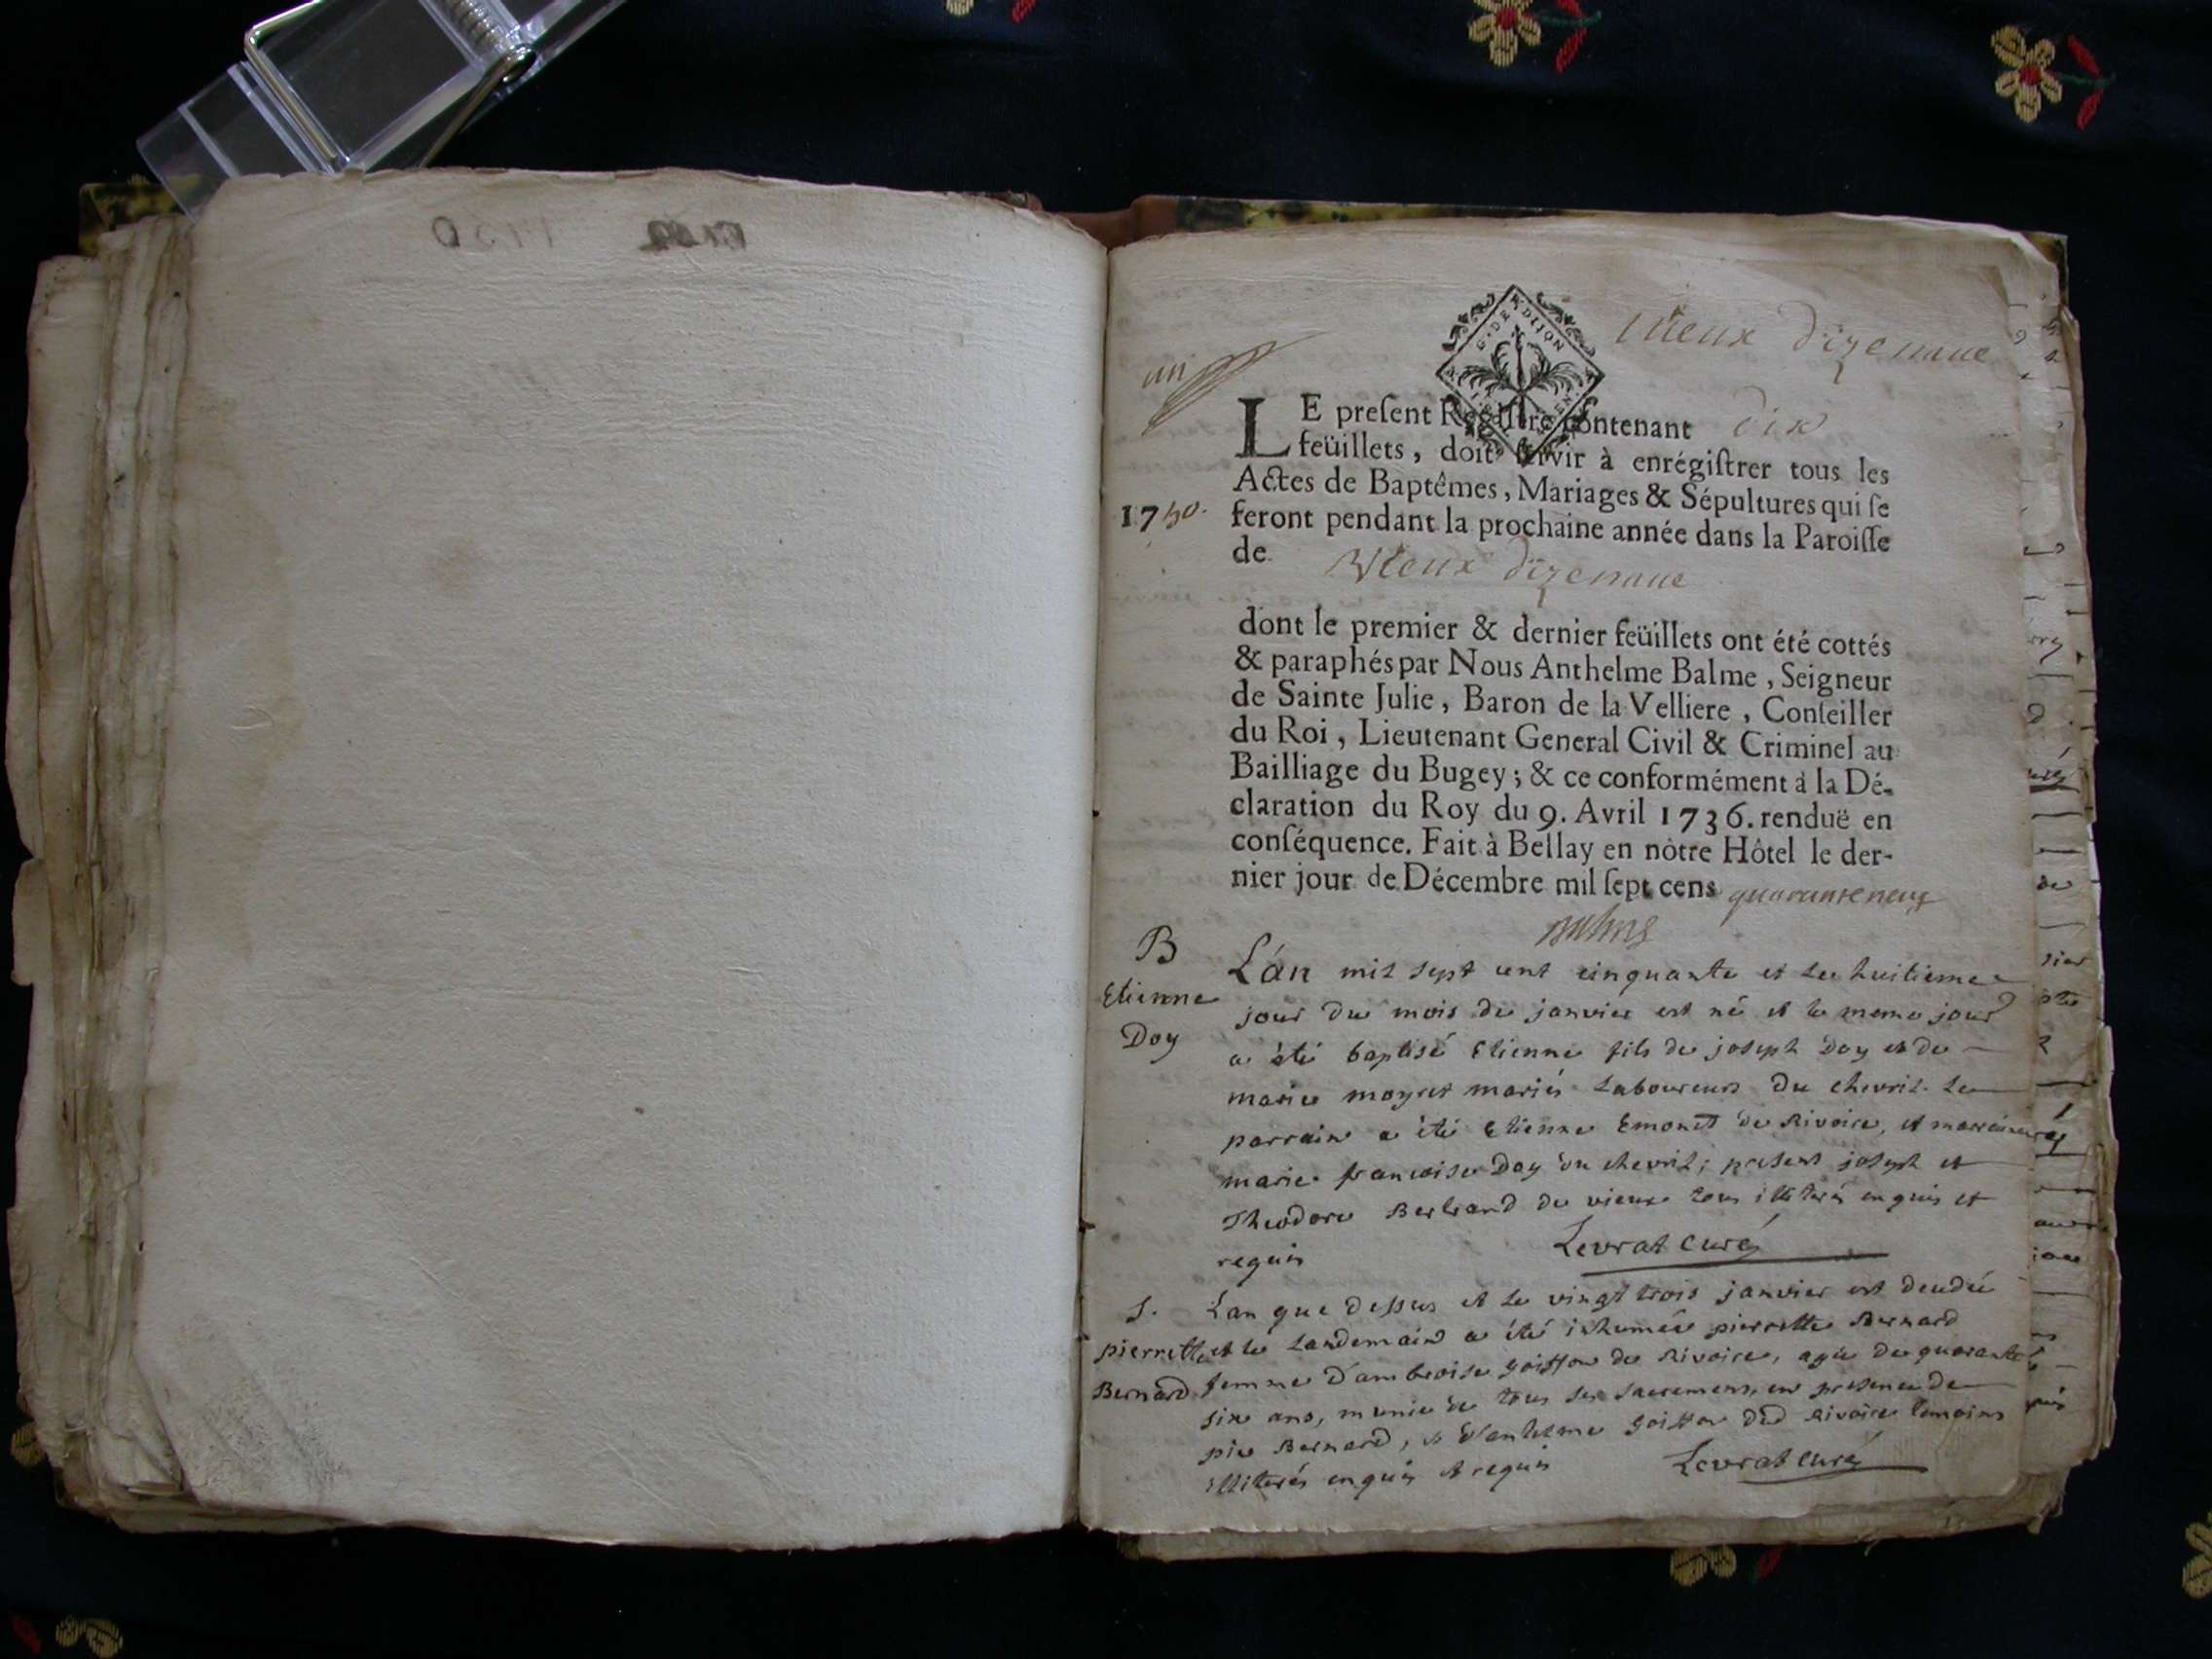 1750
un
G. DE DIJON
vieux d'izenave
LE preſent Regiſtre contenant dix
feüillets, doit ſervir à enrégiſtrer tous les
Actes de Baptêmes, Mariages & Sépultures qui ſe
1750. feront pendant la prochaine année dans la Paroiſſe
de Vieux d'izenave
dont le premier & dernier feüillets ont été cottés
& paraphés par Nous Anthelme Balme, Seigneur
de Sainte Julie, Baron de la Velliere, Conſeiller
du Roi, Lieutenant General Civil & Criminel au
Bailliage du Bugey; & ce conformément à la Dé-
claration du Roy du 9. Avril 1736. renduë en
conſéquence. Fait à Bellay en nôtre Hôtel le der-
nier jour de Décembre mil ſept cens quarante neuf
Balme
B
Etienne
Doy
L'an mil sept cent cinquante et le huitieme
jour du mois de janvier est né et le meme jour
a été baptisé Etienne fils de joseph Doy et de
marie moyret mariés Laboureurs du chevril. Le
parrain a été Etienne Emonet de Rivoire, et marraine
marie francoise Doy du chevril; present joseph et
Theodore Bertrand de vieux tous illiterés enquis et
requis Levrat curé
S.
pierrette
Bernard
L'an que dessus et le vingt trois janvier est decedée
et le Landemain a été inhumée pierrette Bernard
femme d'ambroise goiffon de Rivoire, agée de quarante
six ans, munie de tous ses sacremens, en presence de
pierre Bernard, et d'anthelme goiffon dud Rivoire temoins
illiterés enquis et requis Levrat curé